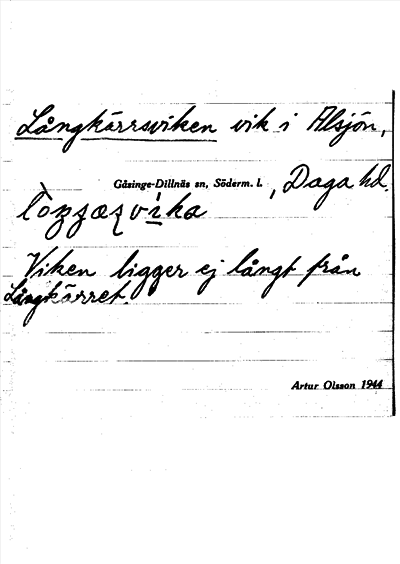 Långkärrsviken vik i Alsjön,
Gåsinge-Dillnäs sn, Söderm. l., Daga hd.
Viken ligger ej långt från
Långkärret.
Artur Olsson 1944